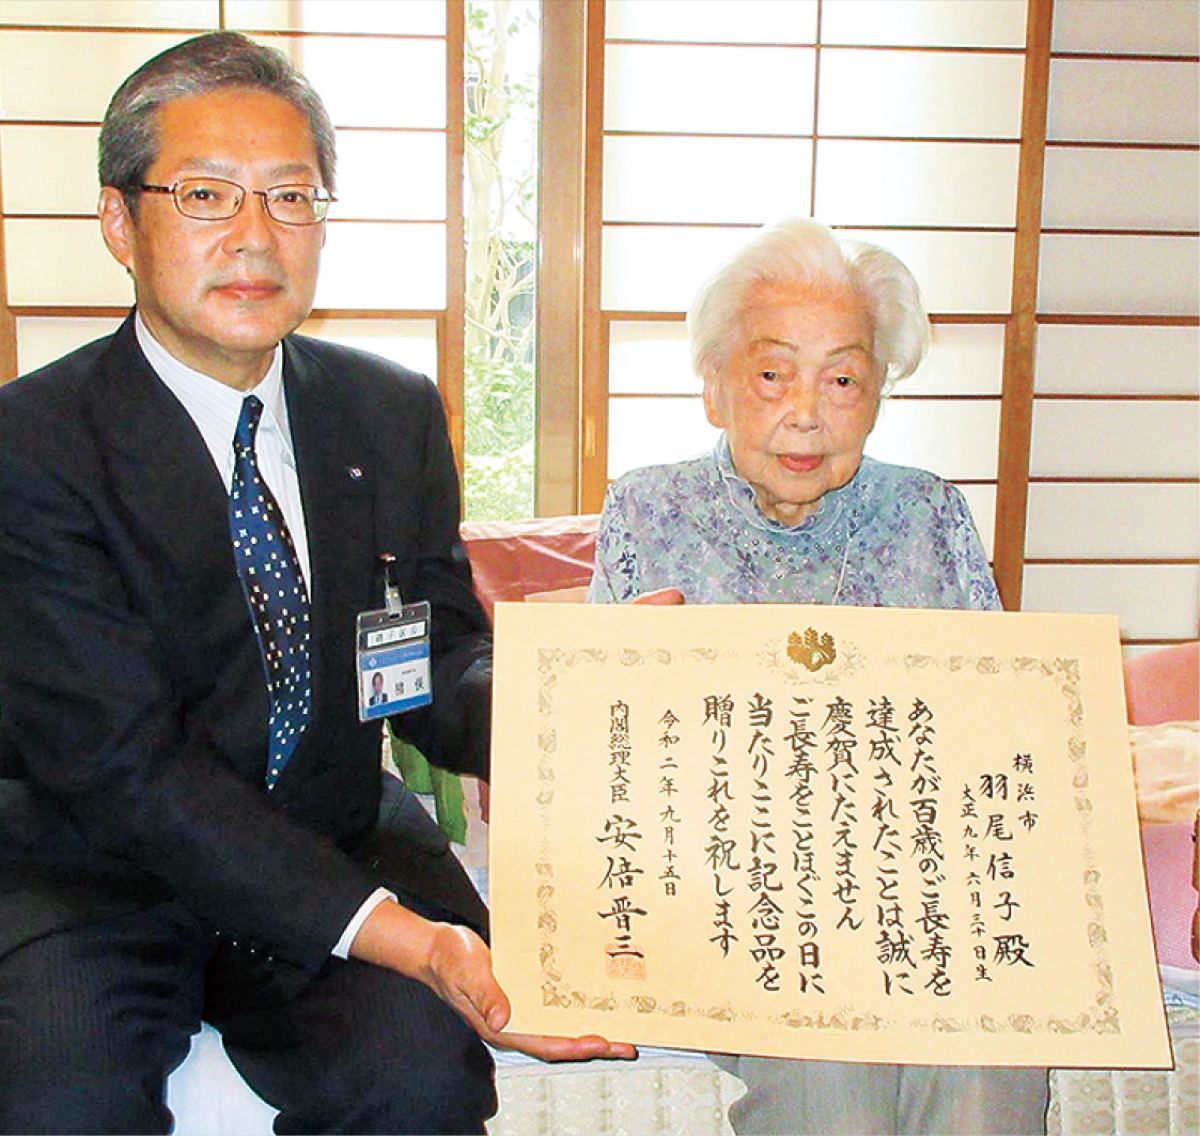 横浜市
羽尾信子殿
大正九年六月三十日生
あなたが百歳のご長寿を
達成されたことは誠に
慶賀にたえません
ご長寿をことほぐこの日に
当たりここに記念品を
贈りこれを祝します
令和二年九月十五日
内閣総理大臣 安倍晋三
磯子区長